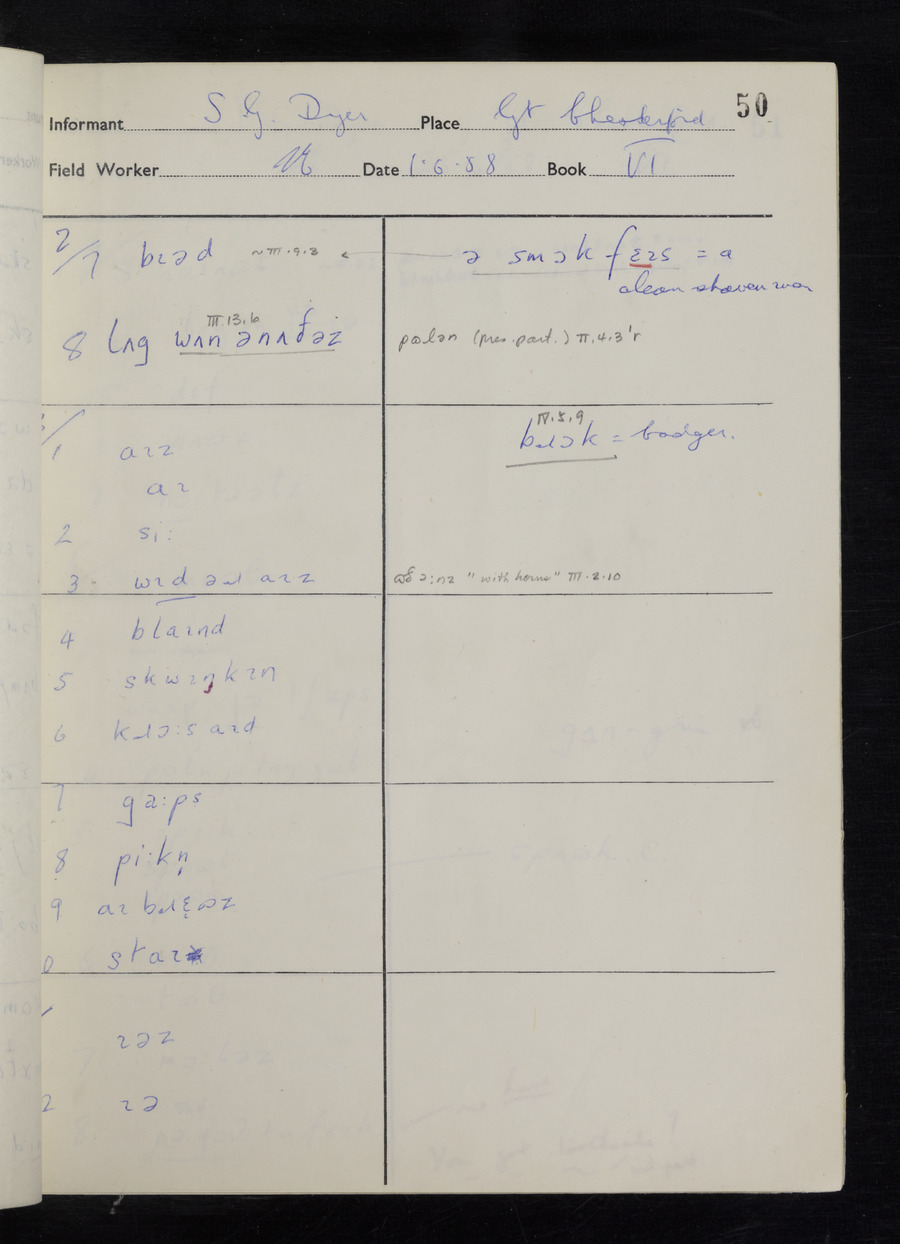 50
Informant S G. Dyer Place Gt Chesterford
Field Worker Date 1·6·58 Book VI
2/7 bɪəd ~III.9.3 ← ə smɔk fɛɪs = a
clean shaven man
III 13.6
8 lʌg wʌn ənʌðəz pʊlən (pres. part.) III.4.3'r
3/
IV.5.9
1 aɪz bɹɔk = badger.
aɪ
2 si:
3 wɪd əɹ aɪz əð ɔ:nz "with horns" III.2.10
4 blaɪnd
5 skwɪŋkɪn
6 kɹɔ:s aɪd
7 ga:ps
8 pi:kn̩
9 aɪ bɹɛʊz
0 staɪ
ɪəz
2 ɪə